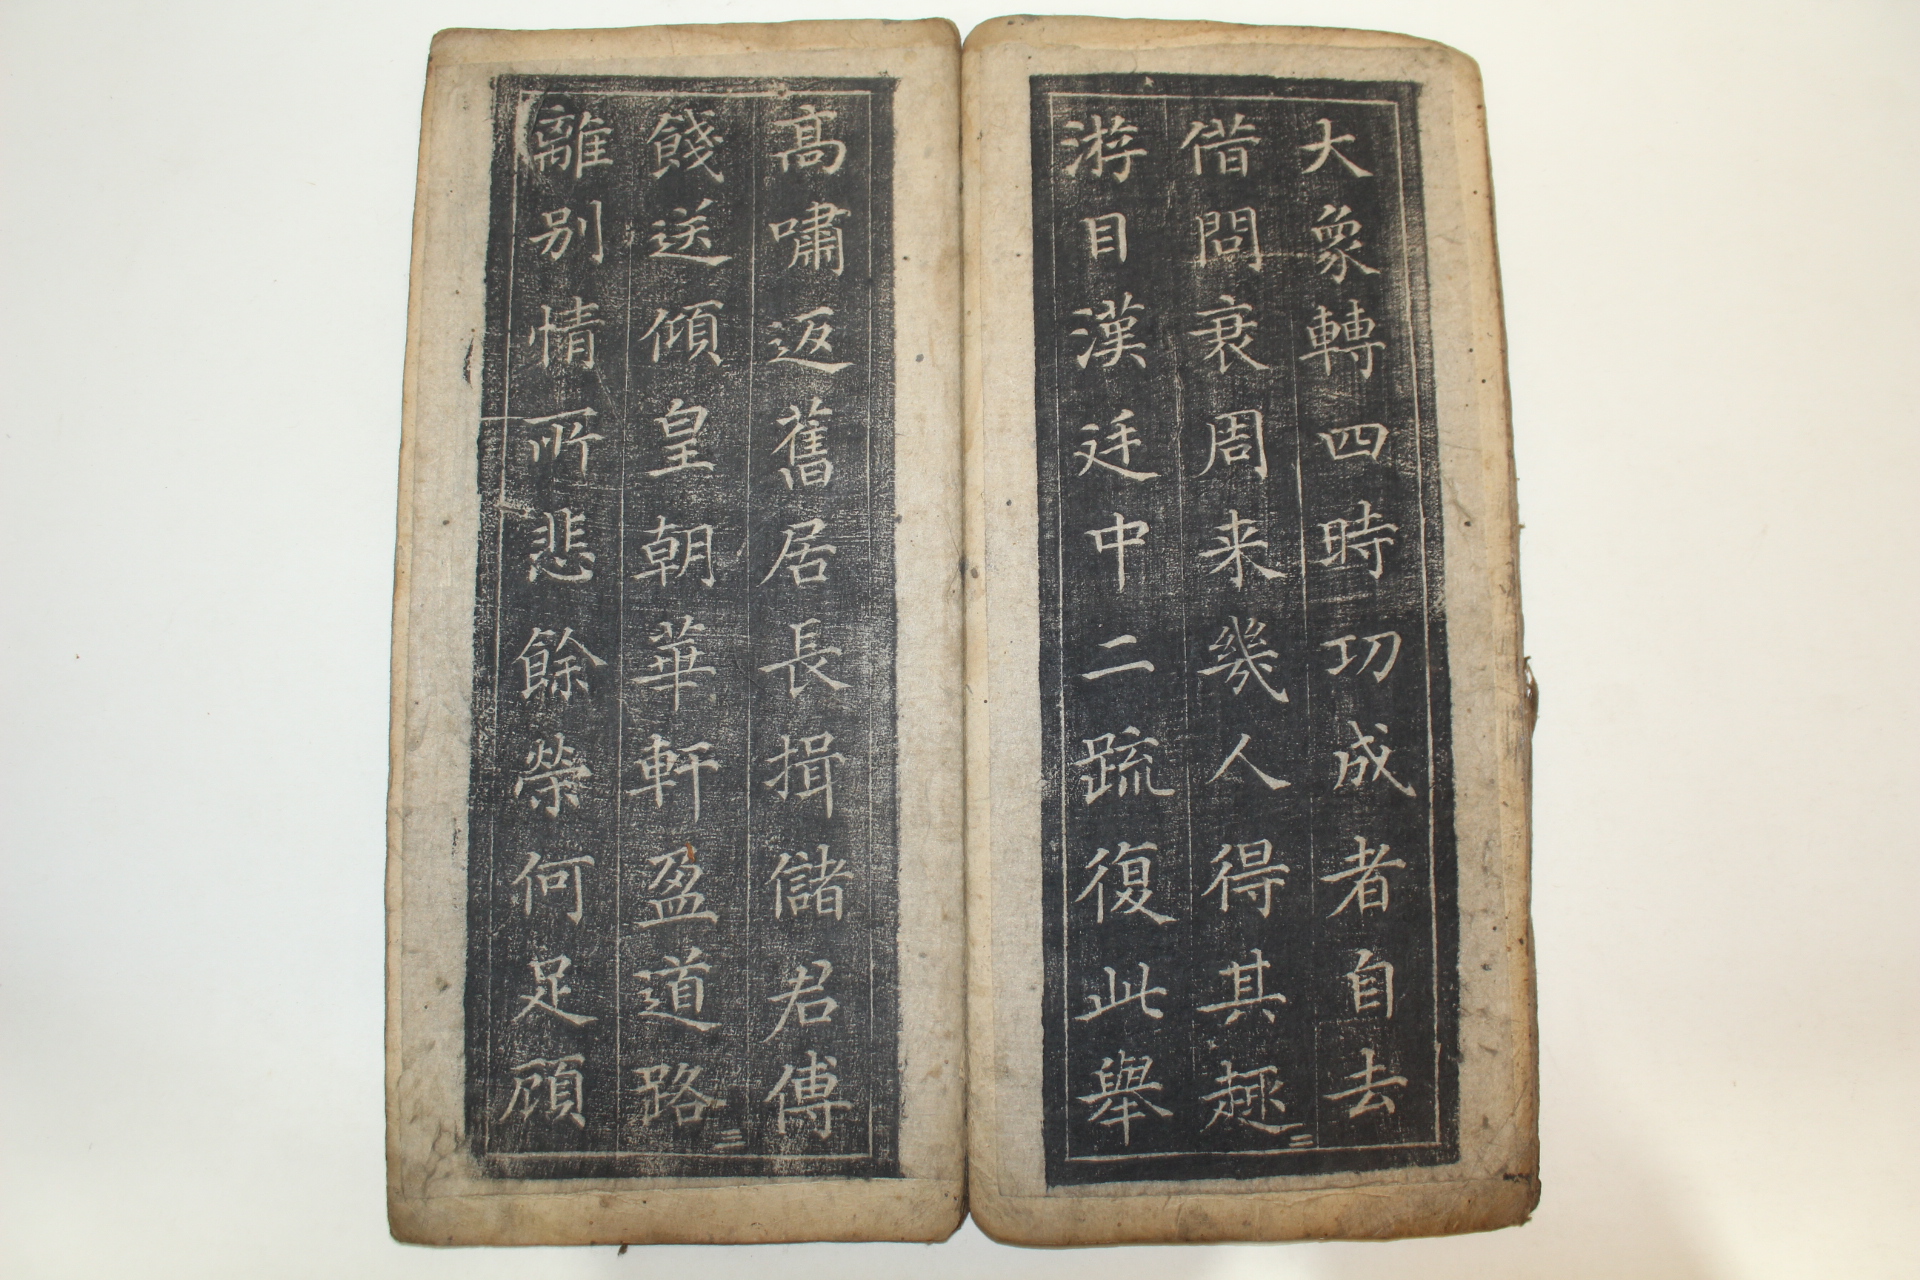 大象轉四時功成者自去
借問衰周来幾人得其趣
二
游目漢廷中二疏復此舉
高嘯返舊居長揖儲君傅
餞送傾皇朝華軒盈道路
三
離別情所悲餘榮何足顧